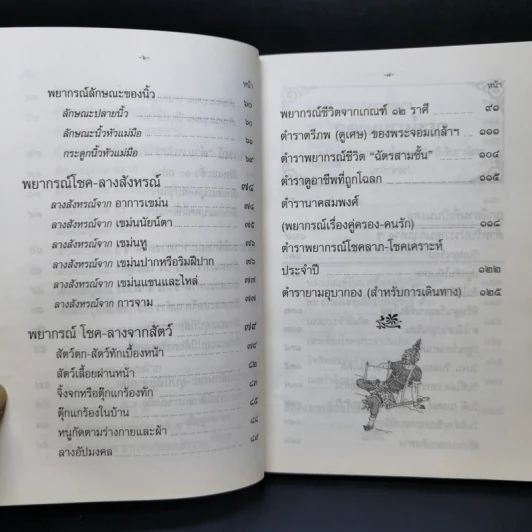 -๖-
หน้า
พยากรณ์ลักษณะของนิ้ว ๖๐
ลักษณะปลายนิ้ว ๖๐
ลักษณะนิ้วหัวแม่มือ ๖๘
กระดูกนิ้วหัวแม่มือ ๖๙
พยากรณ์โชค-ลางสังหรณ์ ๗๔
ลางสังหรณ์จาก อาการเขม่น ๗๔
ลางสังหรณ์จาก เขม่นนัยน์ตา ๗๕
ลางสังหรณ์จาก เขม่นหู ๗๖
ลางสังหรณ์จาก เขม่นปากหรือริมฝีปาก ๗๖
ลางสังหรณ์จาก เขม่นแขนและไหล่ ๗๗
ลางสังหรณ์จาก การจาม ๗๗
พยากรณ์ โชค-ลางจากสัตว์ ๗๙
สัตว์ตก-สัตว์ทักเบื้องหน้า ๗๙
สัตว์เลื้อยผ่านหน้า ๘๒
จิ้งจกหรือตุ๊กแกร้องทัก ๘๓
ตุ๊กแกร้องในบ้าน ๘๔
หนูกัดตามร่างกายและผ้า ๘๔
ลางอัปมงคล ๘๗
-๗-
หน้า
พยากรณ์ชีวิตจากเกณฑ์ ๑๒ ราศี ๙๐
ตำราตรีภพ (ดูเศษ) ของพระจอมเกล้าฯ ๑๑๑
ตำราพยากรณ์ชีวิต "ฉัตรสามชั้น" ๑๐๔
ตำราดูอาชีพที่ถูกโฉลก ๑๑๕
ตำรานาคสมพงศ์
(พยากรณ์เรื่องคู่ครอง-คนรัก) ๑๑๘
ตำราพยากรณ์โชคลาภ-โชคเคราะห์
ประจำปี ๑๒๒
ตำรายามอุบากอง (สำหรับการเดินทาง) ๑๒๕